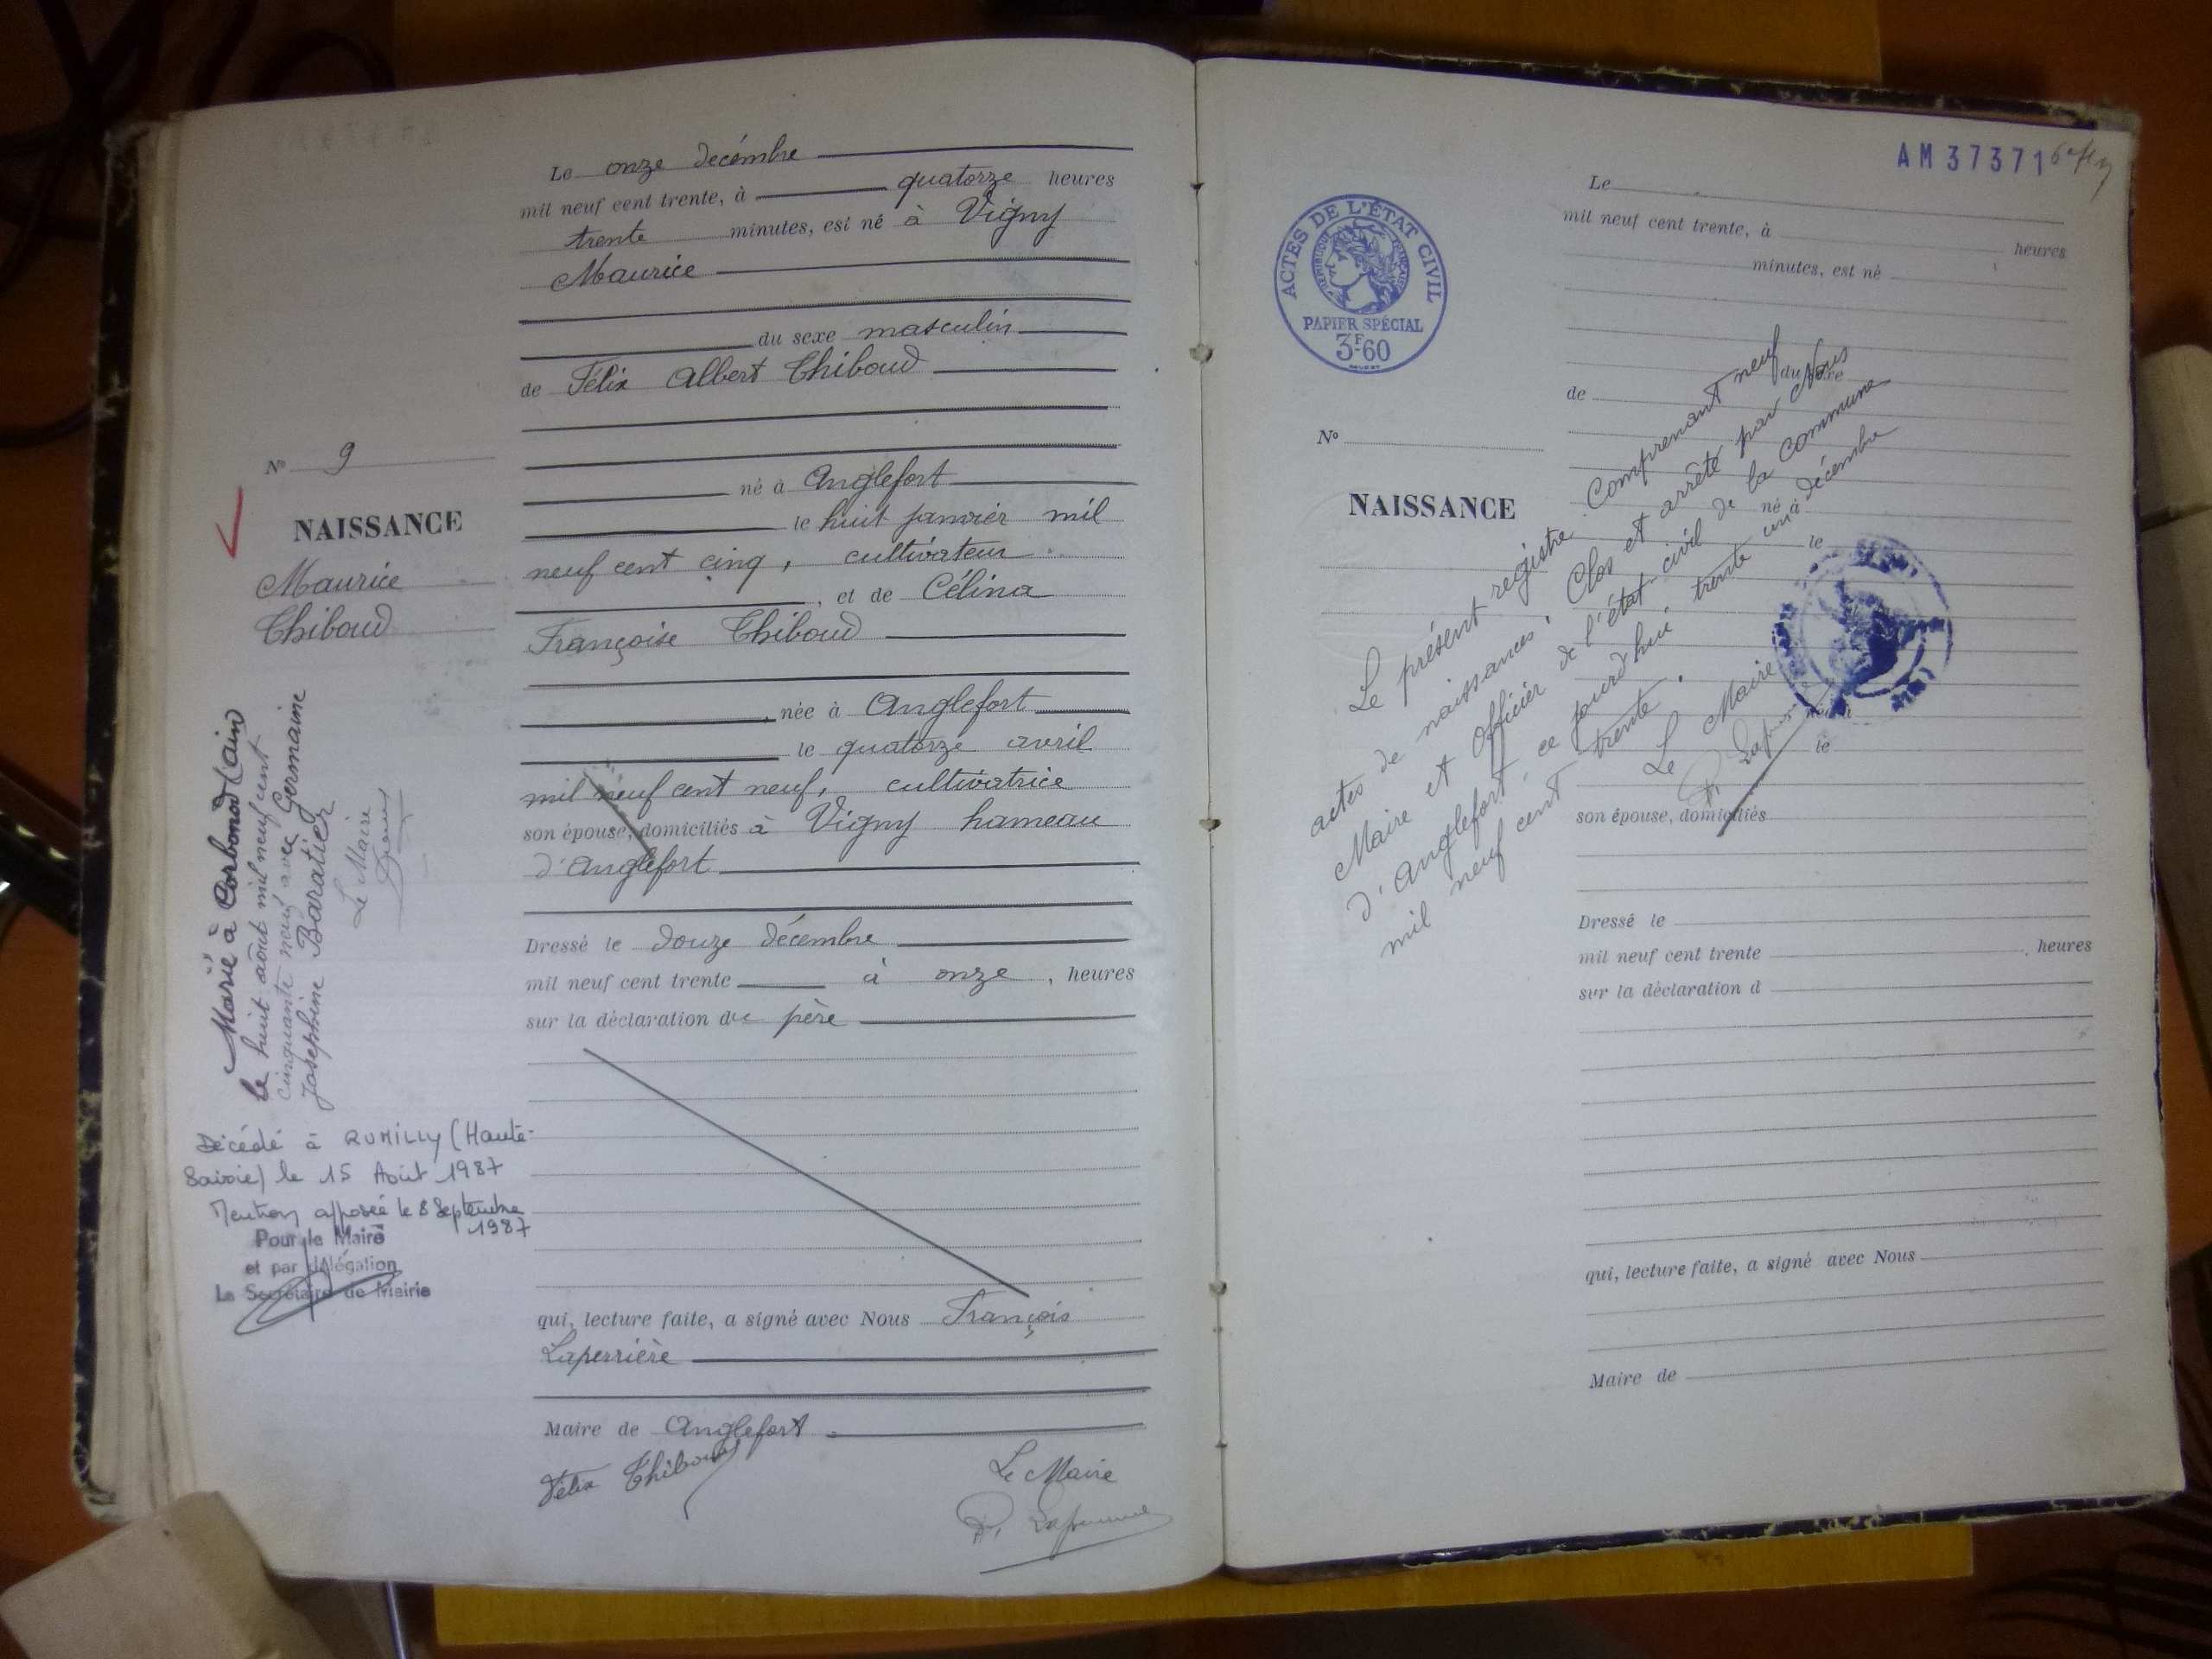 Le onze décembre
mil neuf cent trente, à quatorze heures
trente minutes, est né à Vigny
Maurice
du sexe masculin
de Félix Albert Thiboud
né à Anglefort
le huit janvier mil
neuf cent cinq, cultivateur
, et de Célina
Françoise Thiboud
née à Anglefort
le quatorze avril
mil neuf cent neuf, cultivatrice
son épouse, domiciliés à Vigny hameau
d'Anglefort
Dressé le douze décembre
mil neuf cent trente à onze, heures
sur la déclaration du père
qui, lecture faite, a signé avec Nous François
Laperrière
Maire de Anglefort
Félix Thiboud
Le Maire
Nº 9
NAISSANCE
Maurice
Thiboud
Marié à Corbonod (ain)
le huit août mil neuf cent
cinquante neuf avec Germaine
Joséphine Baratier
Le Maire
Décédé à RUMILLY (Haute-
Savoie) le 15 Août 1987
Mention apposée le 8 Septembre
1987
Pour le Maire
et par délégation
Le Secrétaire de Mairie
AM37371
ACTES DE L'ÉTAT CIVIL
RÉPUBLIQUE FRANÇAISE
PAPIER SPÉCIAL
3F60
Le
mil neuf cent trente, à
heures
minutes, est né
du sexe
de
Nº
NAISSANCE
né à
le
le
son épouse, domiciliés
Dressé le
mil neuf cent trente , heures
sur la déclaration d
qui, lecture faite, a signé avec Nous
Maire de
Le présent registre comprenant neuf
actes de naissances, Clos et arrêté par Nous
Maire et Officier de l'état-civil de la Commune
d'Anglefort ce jourd'hui trente un décembre
mil neuf cent trente.
Le Maire